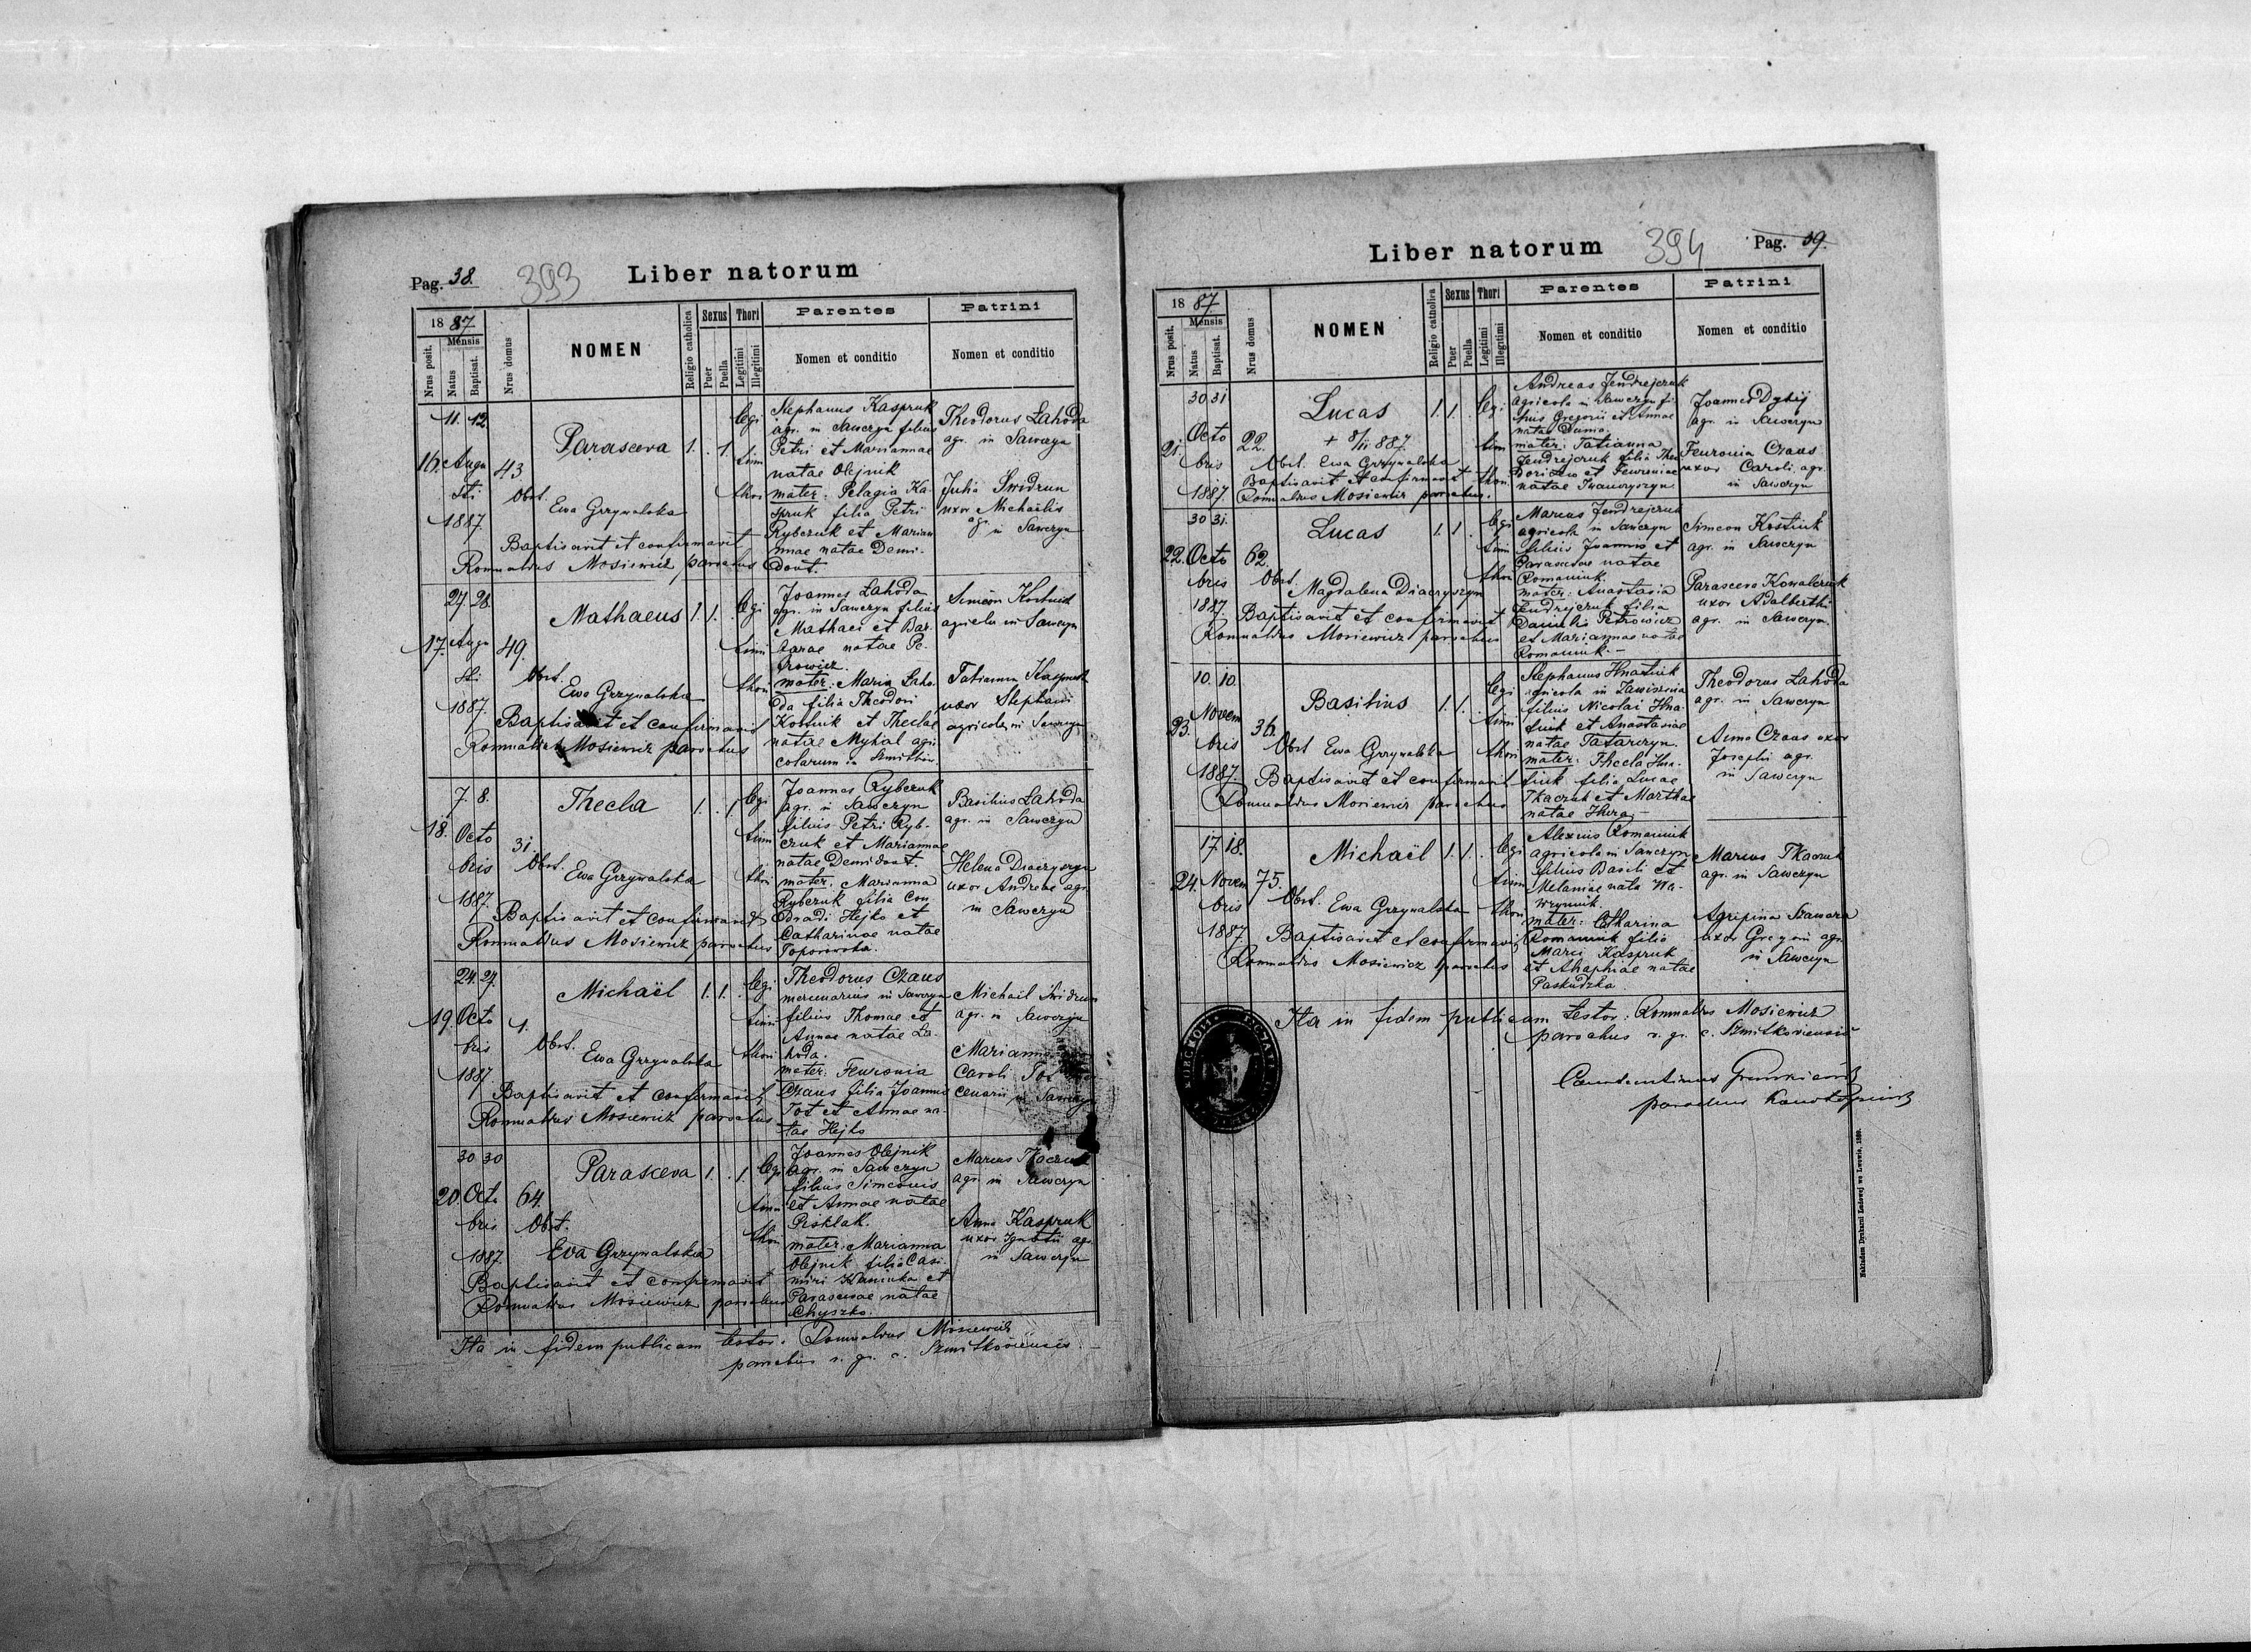 Pag. 38.
393
Liber natorum
18 87
Mensis
Nrus posit.
Natus
Baptisat.
Nrus domus
NOMEN
Religio catholica
Sexus
Puer
Puella
Thori
Legitimi
Illegitimi
Parentes
Nomen et conditio
Patrini
Nomen et conditio
16.
11. 12.
Augu
sti
1887.
43
Parasceva
1. . 1.
legi
timi
thori
Obst.
Ewa Grzywalska
Baptisavit et confirmavit
Romualdus Mosiewicz parochus
Stephanus Kaspruk
agr. in Sawczyn filius
Petri et Mariannae
natae Olejnik
mater: Pelagia Ka-
spruk filia Petri
Rybczuk et Marian
nae natae Demi-
dout.
Theodorus Lahoda
agr. in Sawczyn
Julia Swidrun
uxor Michaelis
agr. in Sawczyn
17.
27. 28.
Augu
sti
1887.
49.
Mathaeus
1. 1.
legi
timi
thori
Obst.
Ewa Grzywalska
Baptisavit et confirmavit
Romualdus Mosiewicz parochus
Joannes Lahoda
agr. in Sawczyn filius
Mathaei et Bar-
barae natae Pe-
trowicz.
mater: Maria Laho-
da filia Theodori
Kostiuk et Theclae
natae Myhal agri
colarum in Szmitków.
Simeon Kostiuk
agricola in Sawczyn
Tatianna Kaspruk
uxor Stephani
agricolae in Sawczyn
18.
7. 8.
Octo
bris
1887.
31.
Thecla
1. . 1.
legi
timi
thori
Obst.
Ewa Grzywalska
Baptisavit et confirmavit
Romualdus Mosiewicz parochus
Joannes Rybczuk
agr. in Sawczyn
filius Petri Ryb-
czuk et Mariannae
natae Demidout.
mater: Marianna
Rybczuk filia Con
dradi Hejko et
Catharinae natae
Toporowska.
Basilius Lahoda
agr. in Sawczyn
Helena Diaczyszyn
uxor Andreae agr.
in Sawczyn
19.
24. 27.
Octo
bris
1887
1.
Michaël
1. 1. .
legi
timi
thori
Obst.
Ewa Grzywalska
Baptisavit et confirmavit
Romualdus Mosiewicz parochus
Theodorus Czaus
mercenarius in Sawczyn
filius Thomae et
Annae natae La-
hoda.
mater: Fewronia
Czaus filia Joannis
Tos et Annae na-
tae Hejko
Michaël Swidrun
agr. in Sawczyn
Marianna
Caroli Tos
cenarii in Sawczyn
20.
30 30
Octo
bris
1887.
64.
Parasceva
1. . 1.
legi
timi
thori
Obst.
Ewa Grzywalska
Baptisavit et confirmavit
Romualdus Mosiewicz parochus
Joannes Olejnik
agr. in Sawczyn
filius Simeonis
et Annae natae
Pisklak.
mater: Marianna
Olejnik filia Casi-
miri Kaminka et
Parascevae natae
Chyszko.
Marcus Tkaczuk
agr. in Sawczyn
Anna Kaspruk
uxor Ignatii agr.
in Sawczyn
Ita in fidem publicam testor: Romualdus Mosiewicz
parochus r. gr. c. Szmitkoviensis.
Liber natorum
394
Pag. 39.
18 87.
Mensis
Nrus posit.
Natus
Baptisat.
Nrus domus
NOMEN
Religio catholica
Sexus
Puer
Puella
Thori
Legitimi
Illegitimi
Parentes
Nomen et conditio
Patrini
Nomen et conditio
21.
30 31
Octo
bris
1887.
22.
Lucas
+ 8/11 887.
1. 1. .
legi
timi
thori
Obst. Ewa Grzywalska
Baptisavit et confirmavit
Romualdus Mosiewicz parochus.
Andreas Jendrejczuk
agricola in Sawczyn fi-
lius Gregorii et Annae
natae Dunia.
mater: Tatianna
Jendrejczuk filia Theo
dori et Fewroniae
natae Iwanczyszyn.
Joannes Dybij
agr. in Sawczyn
Fewronia Czaus
uxor Caroli, agr.
in Sawczyn
22.
30 31.
Octo
bris
1887.
62.
Lucas
1. 1. .
legi
timi
thori
Obst.
Magdalena Diaczyszyn
Baptisavit et confirmavit
Romualdus Mosiewicz parochus
Marcus Jendrejczuk
agricola in Sawczyn
filius Joannis et
Parascevae natae
Romaniuk.
mater: Anastasia
Jendrejczuk filia
Danielis Petrowicz
et Mariannae natae
Romaniuk.
Simeon Kostiuk
agr. in Sawczyn
Parasceva Kowalczuk
uxor Adalberthi
agr. in Sawczyn.
23.
10. 10.
Novem
bris
1887.
36.
Basilius
1. 1.
legi
timi
thori
Obst Ewa Grzywalska
Baptisavit et confirmavit
Romualdus Mosiewicz parochus
Stephanus Hnatiuk
agricola in Zawisznia
filius Nicolai Hna-
tiuk et Anastasiae
natae Tatarczyn.
mater: Thecla Hna-
tiuk filia Lucae
Tkaczuk et Marthae
natae
Theodorus Lahoda
agr. in Sawczyn
Anna Czaus uxor
Josephi agr.
in Sawczyn
24.
17. 18.
Novem
bris
1887.
75.
Michaël
1. 1. .
legi
timi
thori
Obst. Ewa Grzywalska
Baptisavit et confirmavit
Romualdus Mosiewicz parochus
Alexius Romaniuk
agricola in Sawczyn
filius Basili et
Melaniae nata Wa-
wrynnik.
mater: Catharina
Romaniuk filia
Marci Kaspruk
et Ahaphiae natae
Paskudzka.
Marcus Tkaczuk
agr. in Sawczyn
Agripina Szawara
uxor Gregorii agr.
in Sawczyn
Ita in fidem publicam testor: Romualdus Mosiewicz
parochus r. gr. c. Szmitkoviensis
parochus
Nakładem Drukarni Ludowej we Lwowie, 1889.